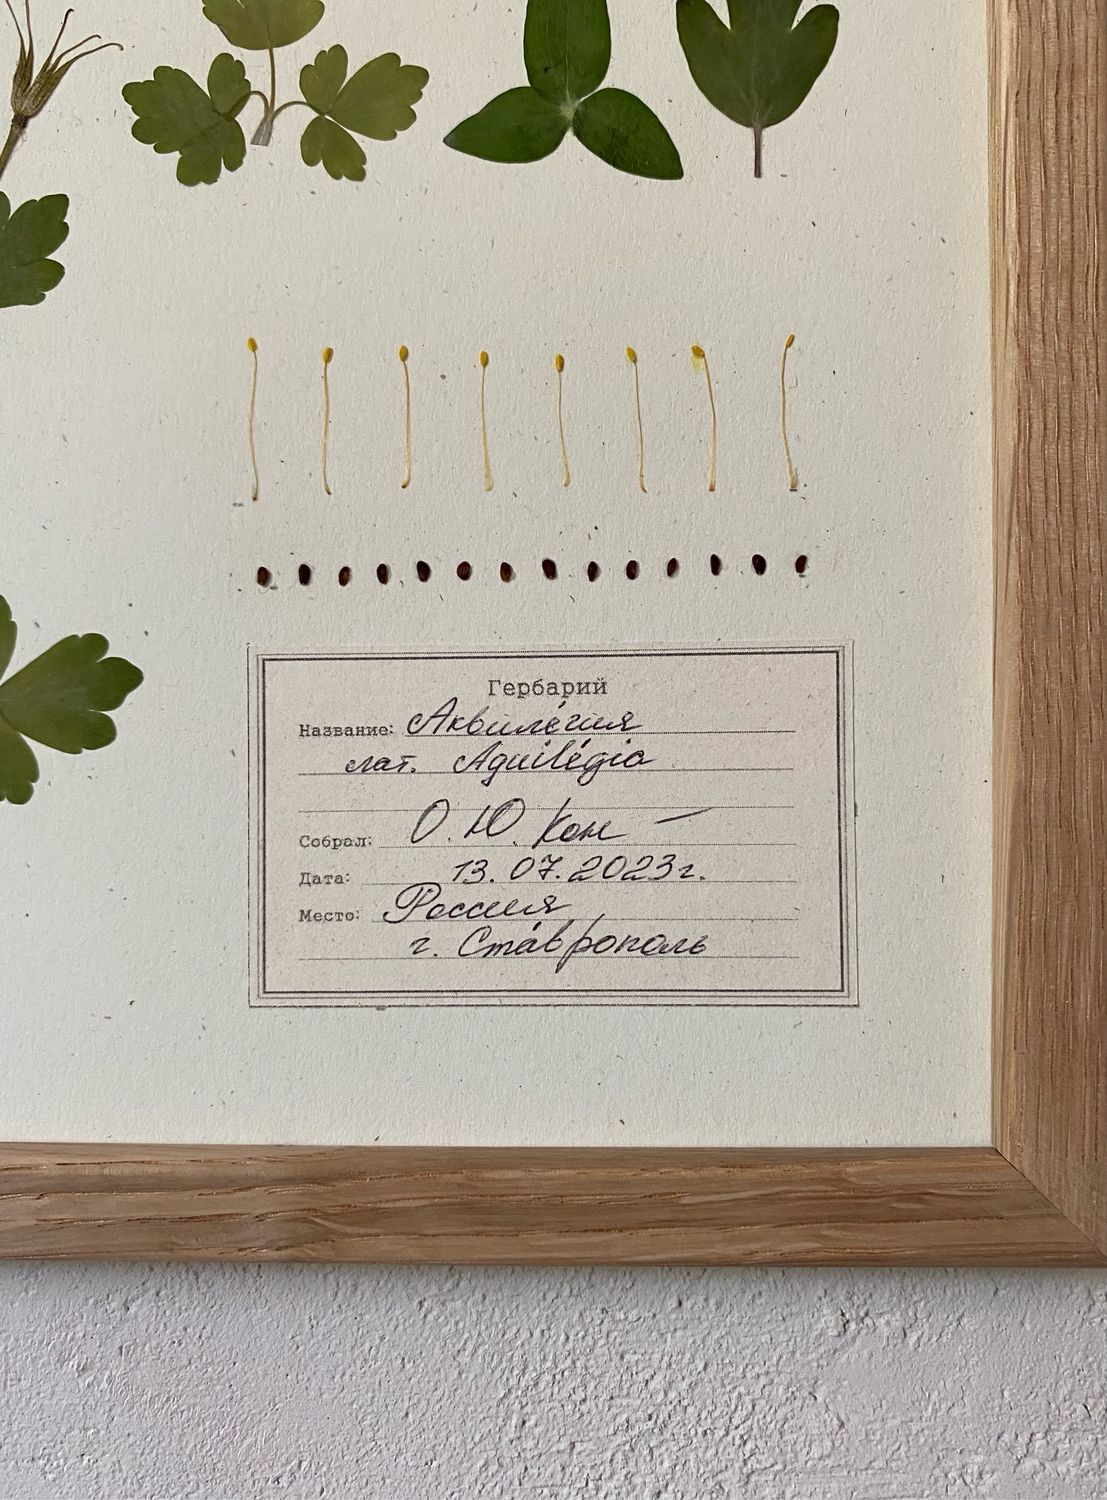 Гербарий
Название: Аквиле́гия
лат. Aguilégia
Собрал: О.Ю. Кон
Дата: 13.07.2023г.
Место: Россия
г. Ста́врополь